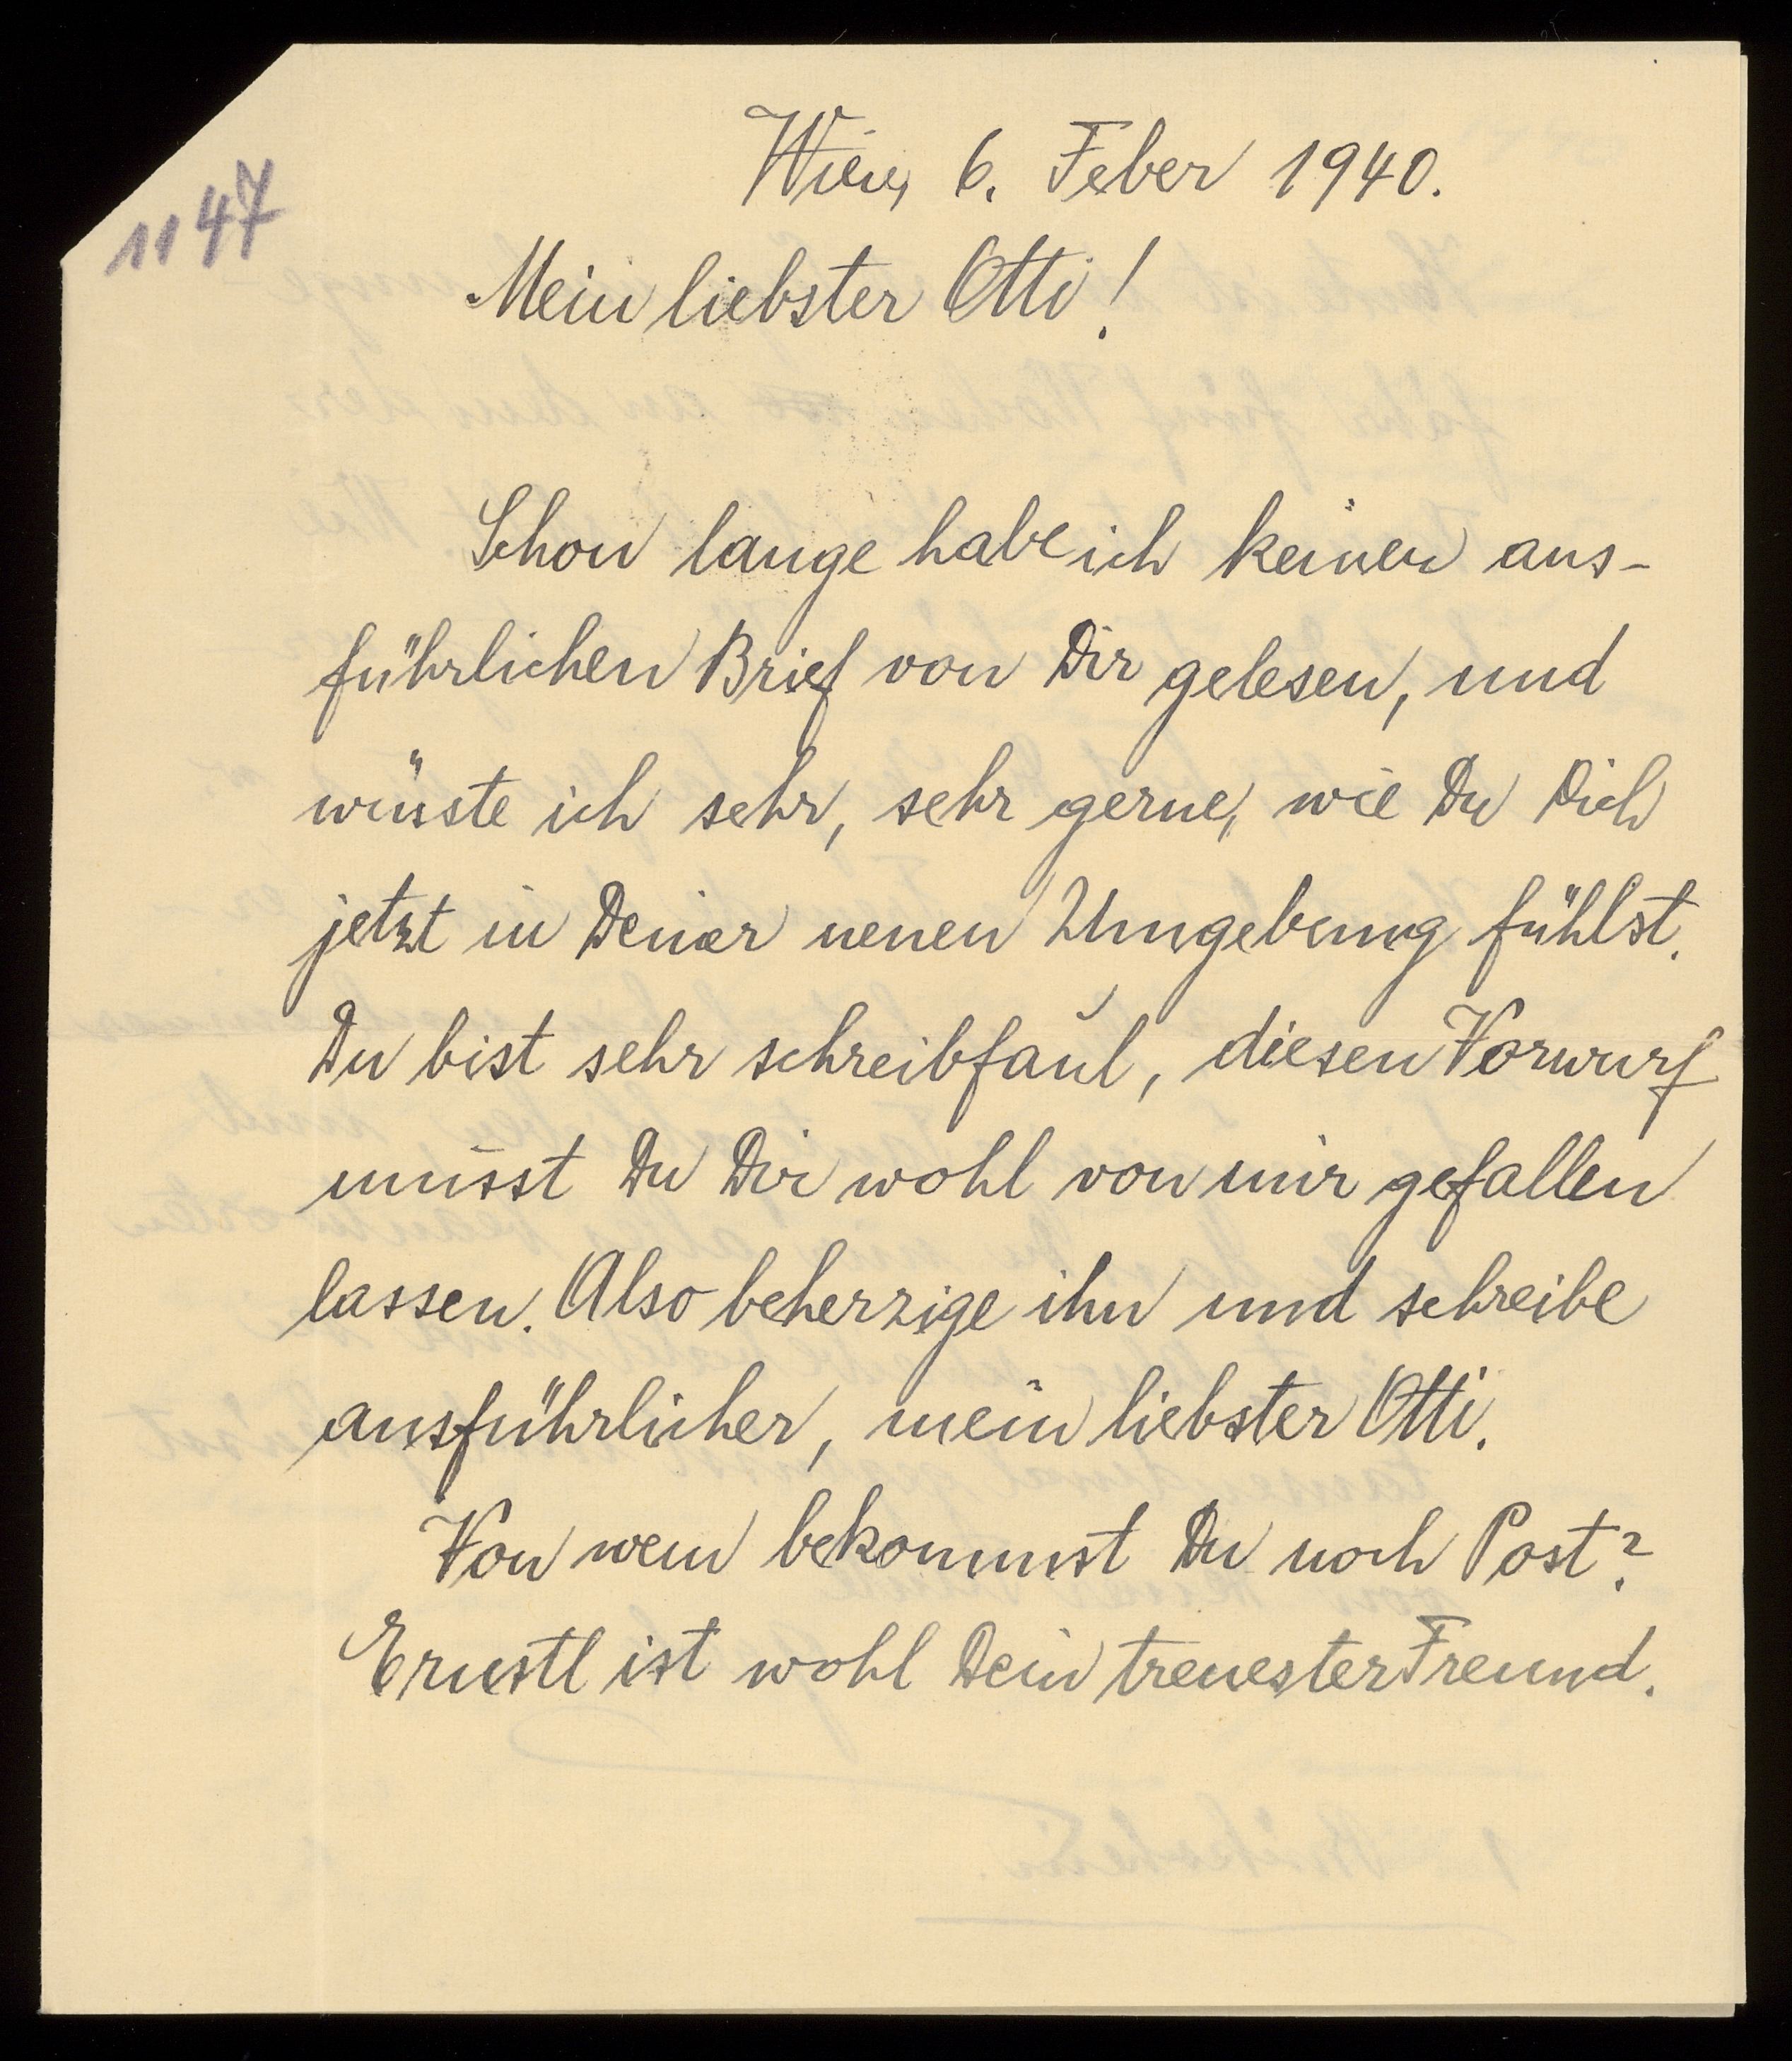 1147
Wien, 6. Feber 1940.
Mein liebster Otti!
Schon lange habe ich keinen aus-
führlichen Brief von Dir gelesen, und
wüsste ich sehr, sehr gerne, wie Du Dich
jetzt in Deiner neuen Umgebung fühlst.
Du bist sehr schreibfaul, diesen Vorwurf
musst Du Dir wohl von mir gefallen
lassen. Also beherzige ihn und schreibe
ausführlicher, mein liebster Otti.
Von wem bekommst Du noch Post?
Ernstl ist wohl Dein treuester Freund.